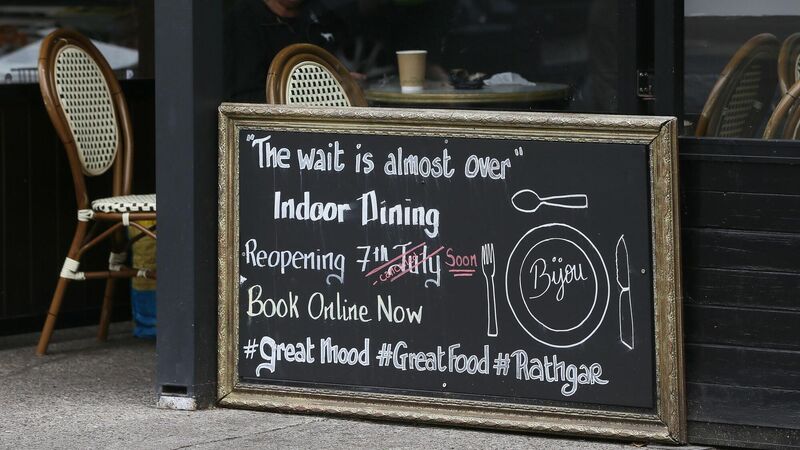 "The wait is almost over"
Indoor Dining
Reopening 7th July Soon
Book Online Now
#great Mood #Great Food #Rathgar
Bijou